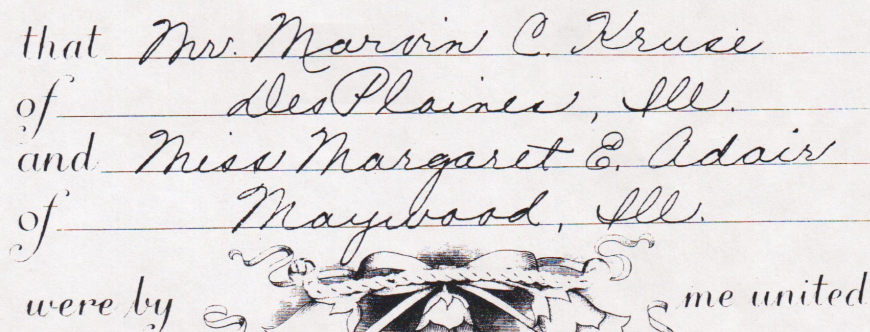 that Mr. Marvin C. Kruse
of DesPlaines, Ill.
and Miss Margaret E. Adair
of Maywood, Ill.
were by me united